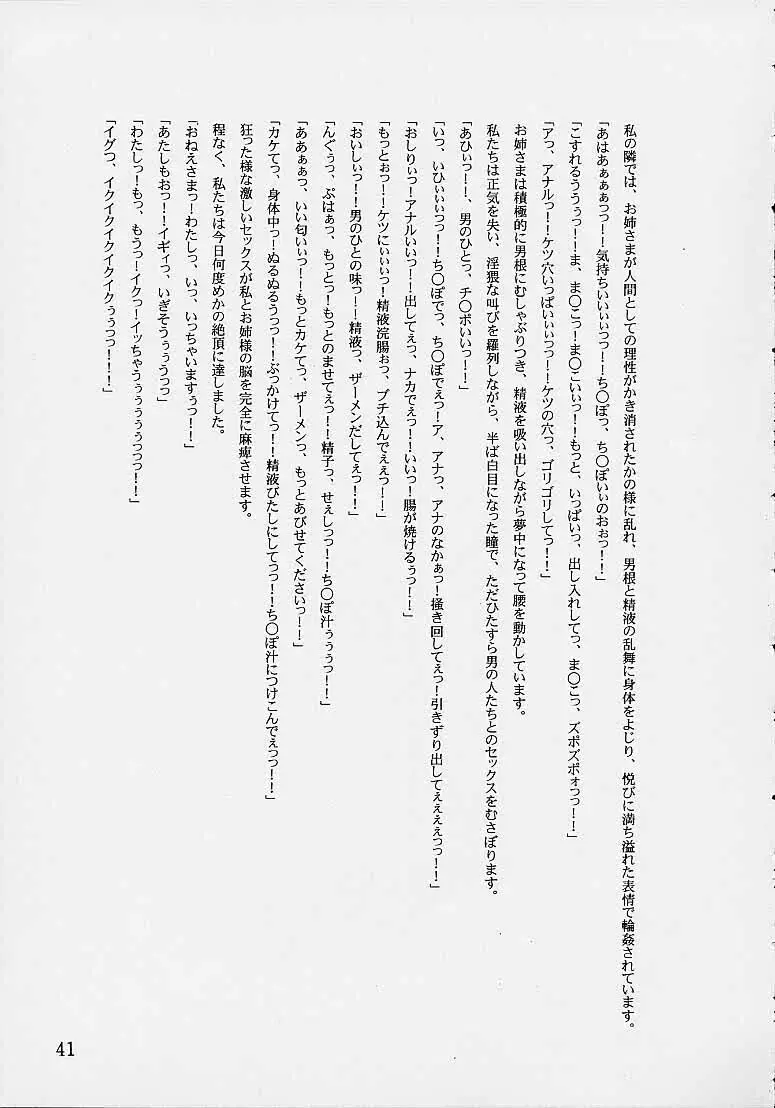 私の隣では、お姉さまが人間としての理性がかき消されたかの様に乱れ、男根と精液の乱舞に身体をよじり、悦びに満ち溢れた表情で輪姦されています。
「あはあぁぁぁっっ!!気持ちいいぃぃっっ!!ち〇ぽっ、ち〇ぽいぃのおぉっ!!」
「こすれるううぅっ!!ま、ま〇こっ!ま〇こいぃっ!!もっと、いっぱいっ、出し入れしてっ、ま〇こっ、ズポズポォっっ!!」
「アっ、アナルっ!!ケツ穴いっぱいぃぃっっ!!ケツの穴っ、ゴリゴリしてっ!!」
お姉さまは積極的に男根にむしゃぶりつき、精液を吸い出しながら夢中になって腰を動かしています。
私たちは正気を失い、淫猥な叫びを羅列しながら、半ば白目になった瞳で、ただひたすら男の人たちとのセックスをむさぼります。
「あひぃっ!!、男のひとっ、チ〇ポいいっ!!」
「いっ、いひぃぃぃっっ!!ち〇ぽでっ、ち〇ぽでぇっ!ア、アナっ、アナのなかぁっ!掻き回してえっ!引きずり出してえぇぇぇっっ!!」
「おしりぃっ!アナルいいっ!!出してえっ、ナカでぇっ!!いいっ!腸が焼けるぅっ!!」
「もっとぉっ!!ケツにぃぃぃっ!精液浣腸ぉっ、ブチ込んでぇぇっ!!」
「おいしぃっ!!男のひとの味っ!!精液っ、ザーメンだしてぇっ!!」
「んぐぅっ、ぷはぁっ、もっとっ!もっとのませてえっ!!精子っ、せぇしっっ!!ち〇ぽ汁ぅぅぅっ!!」
「ああぁぁっ、いい匂いぃっ!!もっとカケてっ、ザーメンっ、もっとあびせてくださいっ!!」
「カケてっ、身体中っ!ぬるぬるうっっ!!ぶっかけてっ!!精液びたしにしてっっ!!ち〇ぽ汁につけこんでえっっ!!」
狂った様な激しいセックスが私とお姉様の脳を完全に麻痺させます。
程なく、私たちは今日何度めかの絶頂に達しました。
「おねえさまっ!わたしっ、いっ、いっちゃいますぅっ!!」
「あたしもおっ!!イギィっ、いぎそうぅぅうっっ」
「わたしっ!もっ、もうっ!イクっ!イッちゃうぅぅぅぅぅっっっ!!」
「イグつ、イクイクイクイクイクぅぅっっ!!!」
41